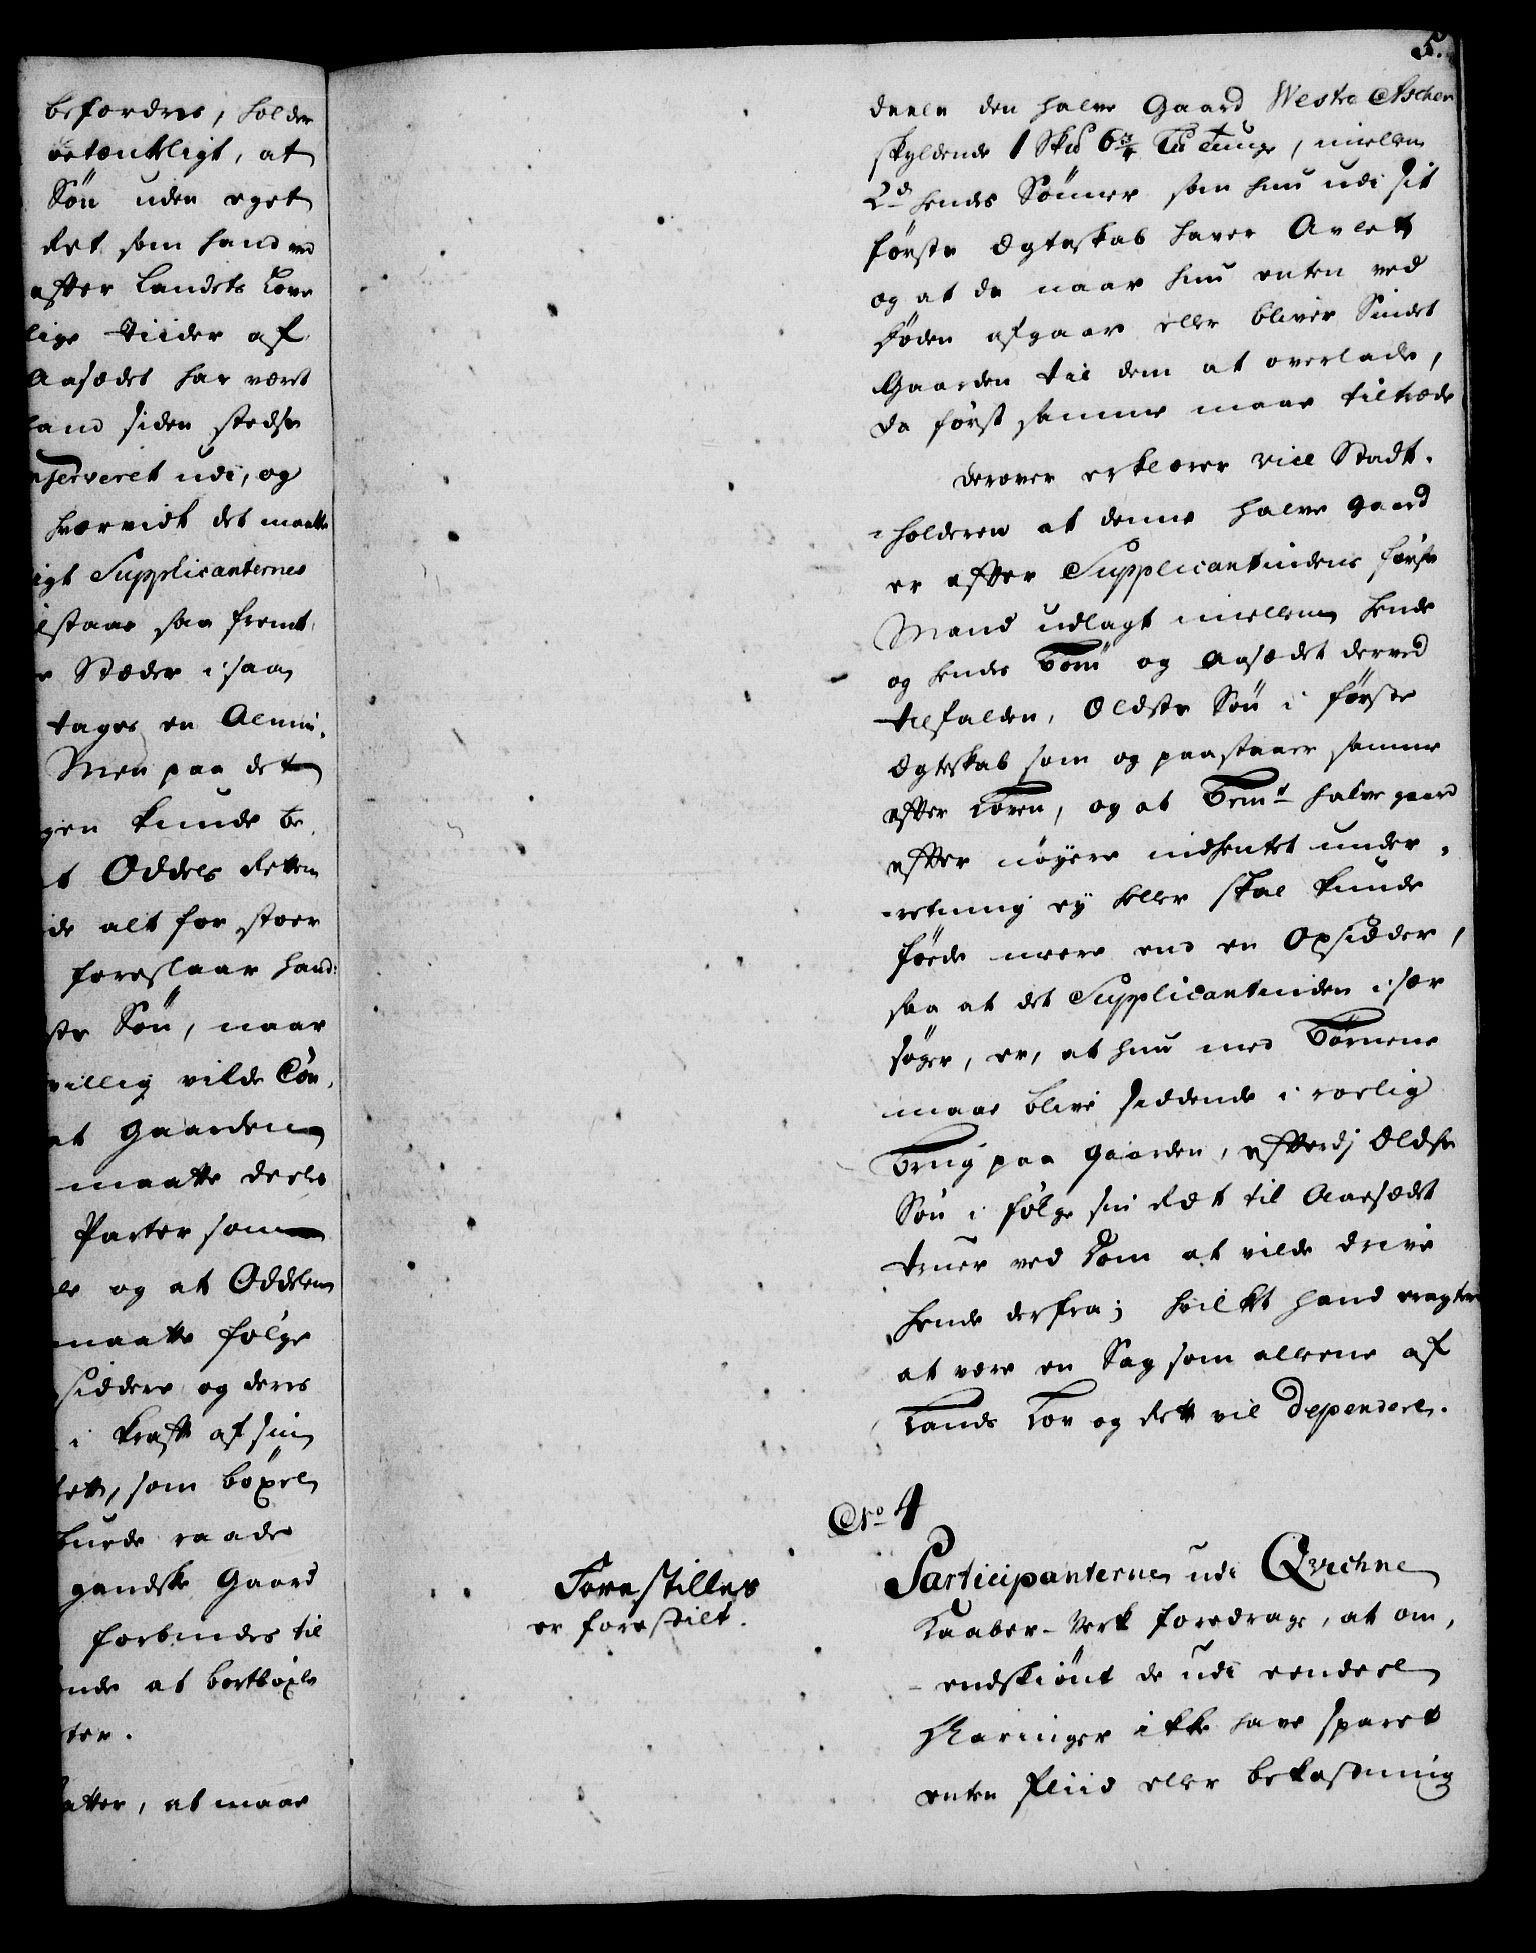 befordres, holder
betænkeligt, at
Søn uden eget
Ret som hand ved
efter Landets Love
lige Tiider af
Aasædet har været
hand siden stedse
nserveret udi, og
hvorvidt det maatte
igt Supplicanternes
lstaae saa fremt
Stæder i saa
tages en Almin-
Men paa det
gen kunde be-
t Oddels Retten
de alt for stoer
foreslaar hand:
ste Søn, naar
villig vilde Con-
at Gaarden
maatte deeles
Parter som
le og at Oddelen
maatte følge
siddere og deres
i Kraft af sin
ett, som böxel
burde raade
gandske Gaard
forbindes til
ende at bortböxle
ter.
atter, at maae
5.
deele den halve Gaard Westre Ascher
skyldende 1 Skd 6 3/4 Ld Tunge, mellem
2de hendes Sönner som hun udi sit
förste Ægteskab haver Avlet
og at de naar hun enten ved
Döden afgaar eller bliver Sindet
Gaarden til dem at overlade,
da först samme maae tiltræde
Derover erklærer vice Stadt-
-holderen at denne halve gaard
er efter Supplicantindens förste
Mand udlagt imellem hende
og hendes Börn og Aasædet derved
tilfalden, Ældste Sön i förste
Ægteskab som og paastaaer samme
efter Loven, og at Bemte halve gaard
efter nöyere indhentet under-
-retning ey heller skal kunde
föde meere end en Opsidder,
saa at det Supplicantinden i sær
söger, er, at hun med Börnene
maae blive siddende i roelig
Brug paa gaarden, efterdj Ældste
Sön i fölge sin Ret til Aaesædet
truer ved Dom at vilde drive
hende derfra; hvilket hand eragter
at være en Sag som allene af
Lands Lov og Rett vil dependere.
No 4
Forestilles
er forestilt.
Participanterne udi Qvichne
Kaaber-Verk foredrage, at om-
-endskiönt de udi eendeel
Aaringer ikke have sparet
enten Fliid eller bekostning